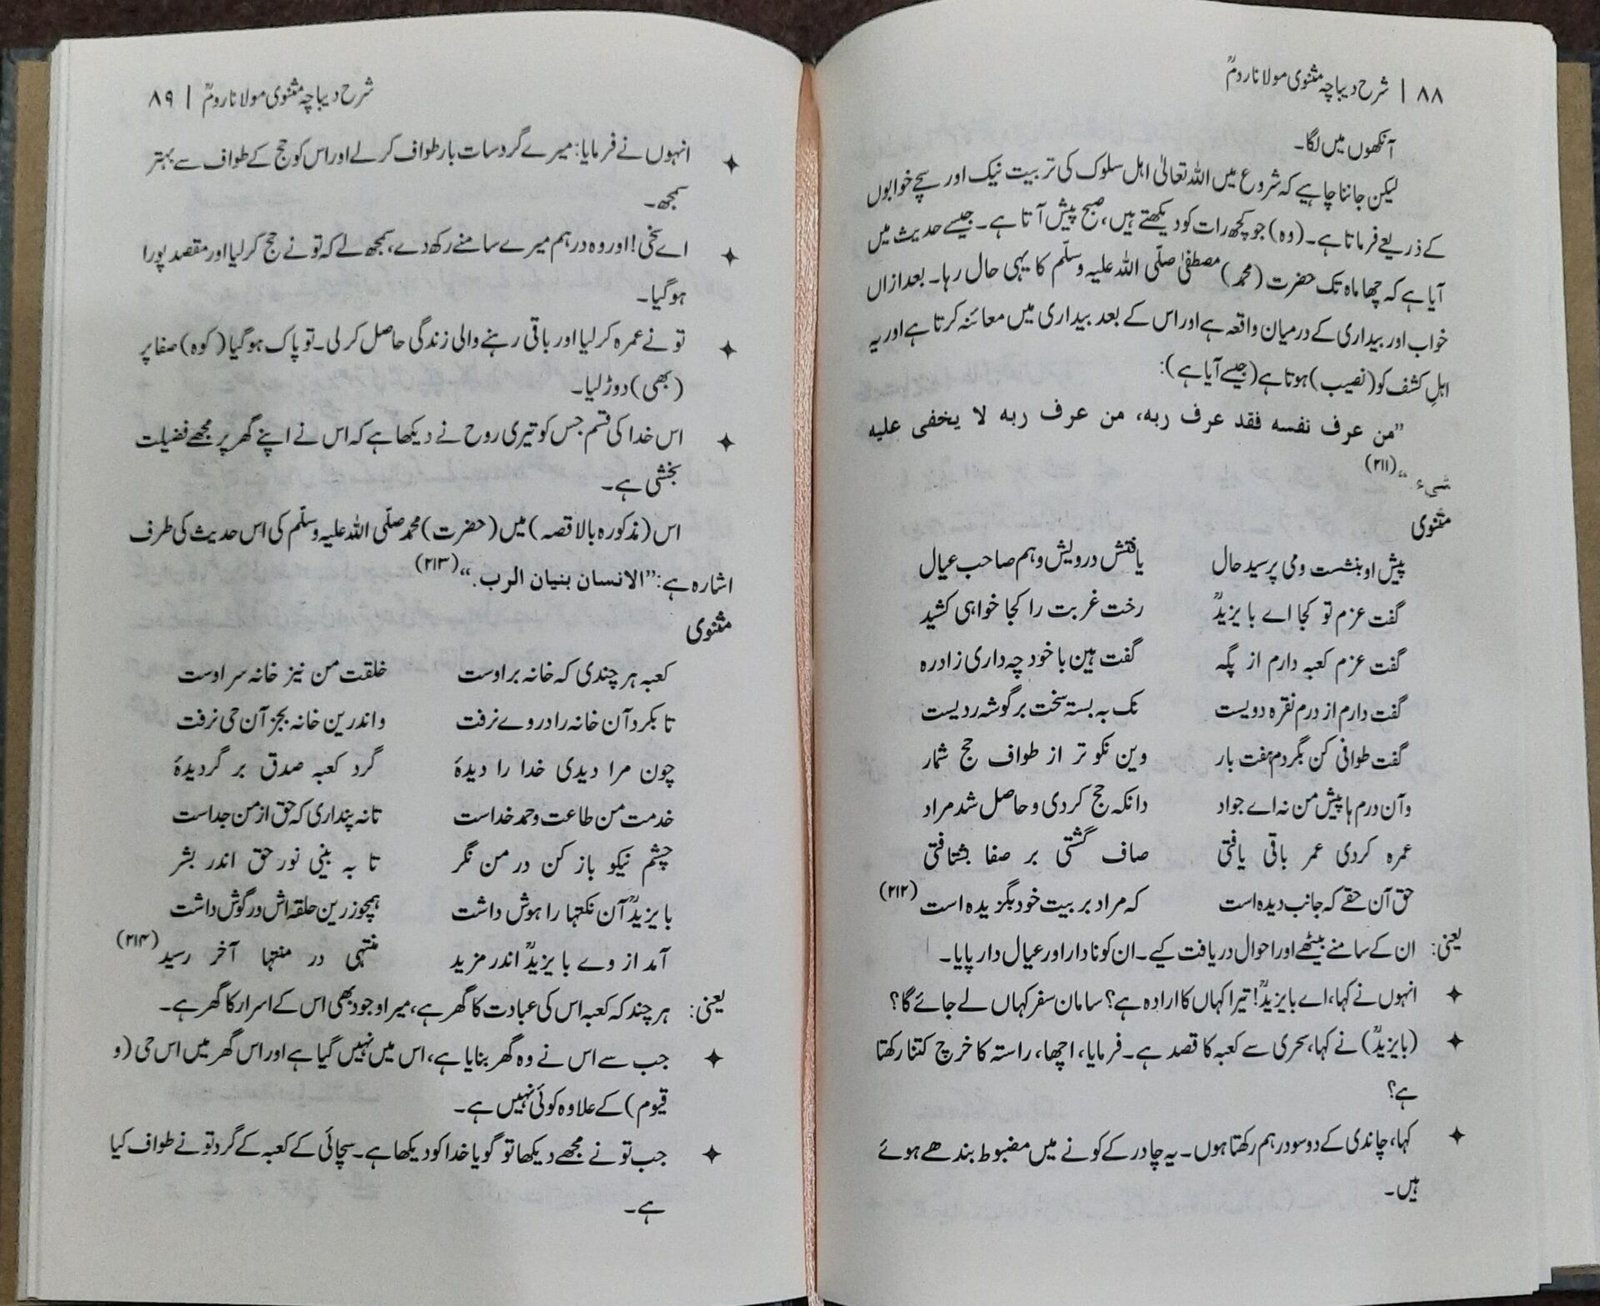 ۸۸ | شرح دیباچہ مثنوی مولانا رومؒ
آنکھوں میں لگا۔
لیکن جاننا چاہیے کہ شروع میں اللہ تعالیٰ اہل سلوک کی تربیت نیک اور سچے خوابوں
کے ذریعے فرماتا ہے۔ (وہ) جو کچھ رات کو دیکھتے ہیں، صبح پیش آتا ہے۔ جیسے حدیث میں
آیا ہے کہ چھ ماہ تک حضرت (محمد) مصطفیٰ صلّی اللہ علیہ وسلّم کا یہی حال رہا۔ بعد ازاں
خواب اور بیداری کے درمیان واقعہ ہے اور اس کے بعد بیداری میں معائنہ کرتا ہے اور یہ
اہلِ کشف کو (نصیب) ہوتا ہے (جیسے آیا ہے):
”من عرف نفسه فقد عرف ربه، من عرف ربه لا يخفى عليه
شيء.“ (۲۱۱)
مثنوی
پیش او بنشست و می پرسید حال یافتش درویش و ہم صاحب عیال
گفت عزم تو کجا اے با یزیدؒ رخت غربت را کجا خواہی کشید
گفت عزم کعبہ دارم از پگہ گفت ہین با خود چہ داری زادرہ
گفت دارم از درم نقرہ دویست نک بہ بستہ سخت بر گوشہ ردیست
گفت طوافی کن بگردم ہفت بار وین نکو تر از طواف حج شمار
وآن درم ہا پیش من نہ اے جواد دانکہ حج کردی و حاصل شد مراد
عمرہ کردی عمر باقی یافتی صاف گشتی بر صفا بشتافتی
حق آن حقے کہ جانب دیدہ است کہ مراد بر بیت خود بگزیدہ است (۲۱۲)
یعنی: ان کے سامنے بیٹھے اور احوال دریافت کیے۔ ان کو نادار اور عیال دار پایا۔
✦ انہوں نے کہا، اے بایزیدؒ! تیرا کہاں کا ارادہ ہے؟ سامان سفر کہاں لے جائے گا؟
✦ (بایزیدؒ) نے کہا، سحری سے کعبہ کا قصد ہے۔ فرمایا، اچھا، راستہ کا خرچ کتنا رکھتا
ہے؟
✦ کہا، چاندی کے دو سو درہم رکھتا ہوں۔ یہ چادر کے کونے میں مضبوط بندھے ہوئے
ہیں۔
شرح دیباچہ مثنوی مولانا رومؒ | ۸۹
✦ انہوں نے فرمایا: میرے گرد سات بار طواف کر لے اور اس کو حج کے طواف سے بہتر
سمجھ۔
✦ اے سخی! اور وہ درہم میرے سامنے رکھ دے، سمجھ لے کہ تو نے حج کر لیا اور مقصد پورا
ہو گیا۔
✦ تو نے عمرہ کر لیا اور باقی رہنے والی زندگی حاصل کر لی۔ تو پاک ہو گیا (کوہ) صفا پر
(بھی) دوڑ لیا۔
✦ اس خدا کی قسم جس کو تیری روح نے دیکھا ہے کہ اس نے اپنے گھر پر مجھے فضیلت
بخشی ہے۔
اس (مذکورہ بالا قصہ) میں (حضرت) محمد صلّی اللہ علیہ وسلّم کی اس حدیث کی طرف
اشارہ ہے: ”الانسان بنیان الرب.“ (۲۱۳)
مثنوی
کعبہ ہر چندی کہ خانہ بر اوست خلقت من نیز خانہ سر اوست
تا بکرد آن خانہ را در وے نرفت و اندرین خانہ بجز آن حی نرفت
چون مرا دیدی خدا را دیدۂ گرد کعبہ صدق بر گردیدۂ
خدمت من طاعت و حمد خداست تا نہ پنداری کہ حق از من جداست
چشم نیکو باز کن در من نگر تا بہ بینی نور حق اندر بشر
بایزیدؒ آن نکتہا را ہوش داشت ہمچو زرین حلقہ اش در گوش داشت
آمد از وے با یزیدؒ اندر مزید منتہی در منتہا آخر رسید (۲۱۴)
یعنی: ہر چند کہ کعبہ اس کی عبادت کا گھر ہے، میرا وجود بھی اس کے اسرار کا گھر ہے۔
✦ جب سے اس نے وہ گھر بنایا ہے، اس میں نہیں گیا ہے اور اس گھر میں اس حی (و
قیوم) کے علاوہ کوئی نہیں ہے۔
✦ جب تو نے مجھے دیکھا تو گویا خدا کو دیکھا ہے۔ سچائی کے کعبہ کے گرد تو نے طواف کیا
ہے۔